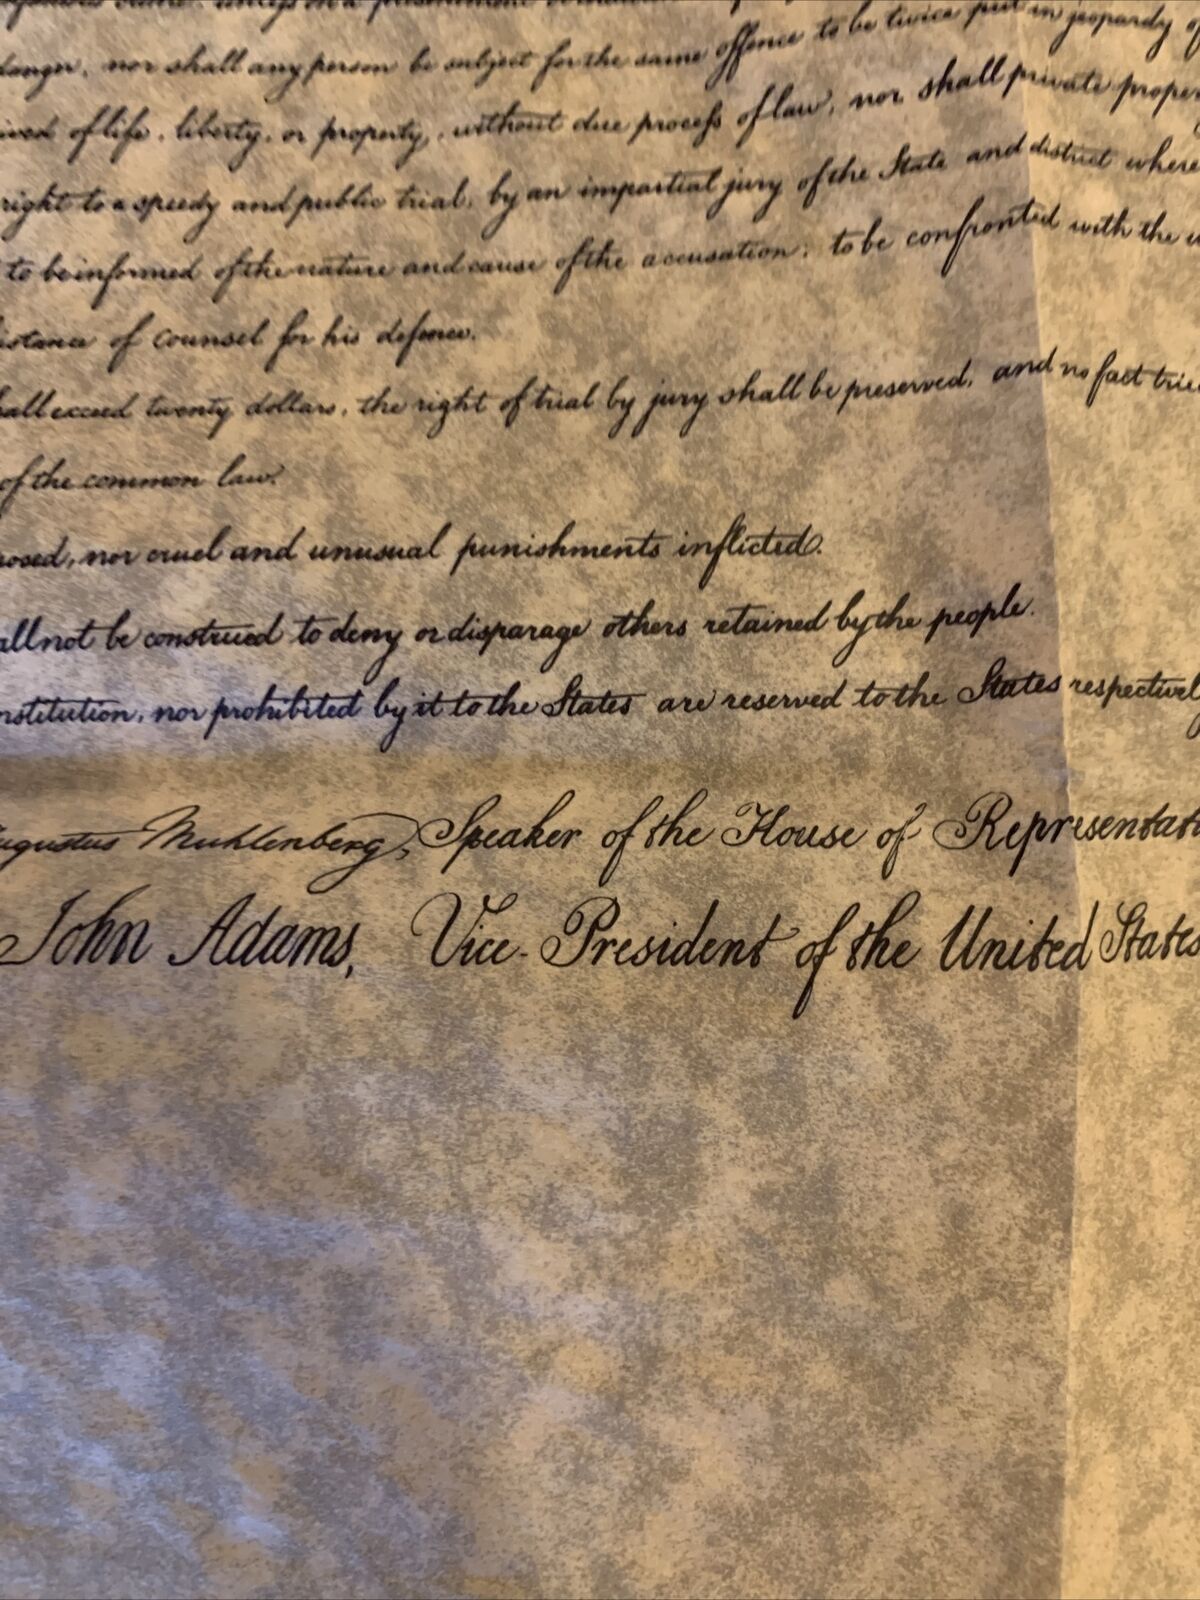 nor shall any person be subject for the same offence to be twice put in jeopardy of
of life, liberty, or property, without due process of law; nor shall private proper
right to a speedy and public trial, by an impartial jury of the State and district where
to be informed of the nature and cause of the accusation; to be confronted with the w
istance of Counsel for his defence.
hall exceed twenty dollars, the right of trial by jury shall be preserved, and no fact trie
of the common law.
posed, nor cruel and unusual punishments inflicted.
all not be construed to deny or disparage others retained by the people.
nstitution, nor prohibited by it to the States are reserved to the States respectively
ugustus Muhlenberg, Speaker of the House of Representati
John Adams, Vice-President of the United States